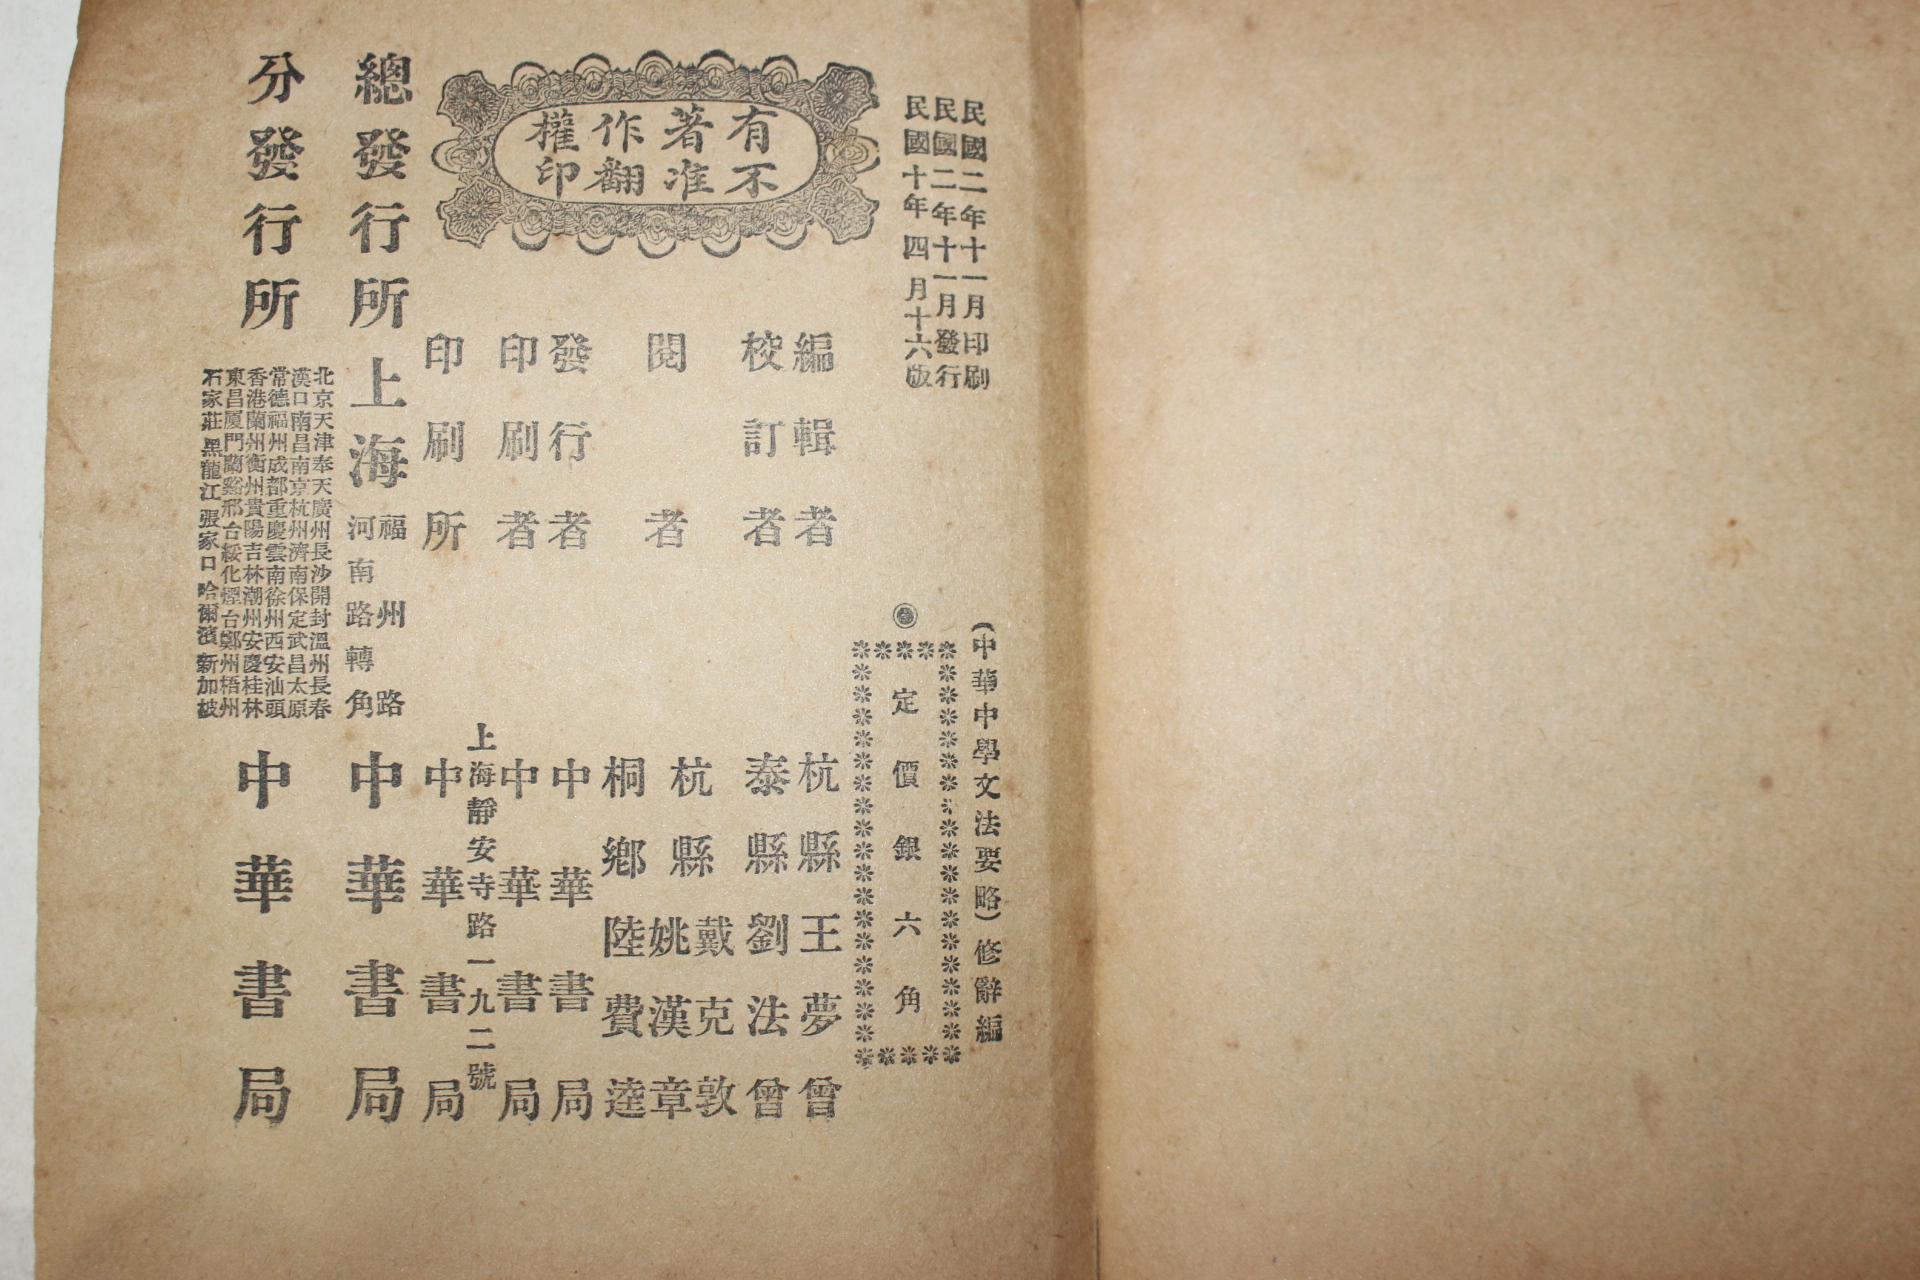 民國二年十一月印刷
民國二年十一月發行
民國十年四月十六版
(中華中學文法要略)修辭編
定價銀六角
有著作權
不准翻印
編輯者 杭縣王夢曾
校訂者 泰縣劉法曾
閱者 杭縣戴克敦
姚漢章
桐鄉陸費逵
發行者 中華書局
印刷者 中華書局
上海靜安寺路一九二號
印刷所 中華書局
總發行所 上海福州路河南路轉角 中華書局
分發行所
北京天津奉天廣州長沙開封溫州長春
漢口南昌南京杭州濟南保定武昌太原
常德福州成都重慶雲南徐州西安汕頭
香港蘭州衡州貴陽吉林潮州安慶桂林
東昌厦門蘭谿邢台綏化煙台鄭州梧州
石家莊黑龍江張家口哈爾濱新加坡
中華書局